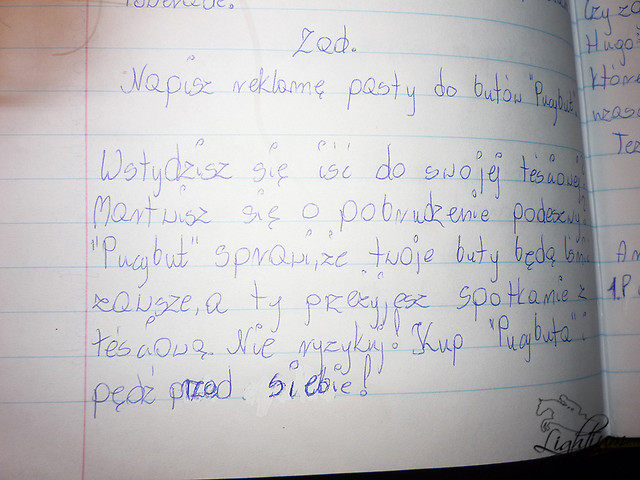 Zad.
Napisz reklamę pasty do butów "Pucybut".
Wstydzisz się iść do swojej teściowej
Martwisz się o pobrudzenie podeszwy
"Pucybut" sprawi, że twoje buty będą
zawsze, a ty przeżyjesz spotkanie z
teściową. Nie ryzykuj! Kup "Pucybuta" i
pędź przed siebie!
Czy
Hugo
które
Też
1.P.